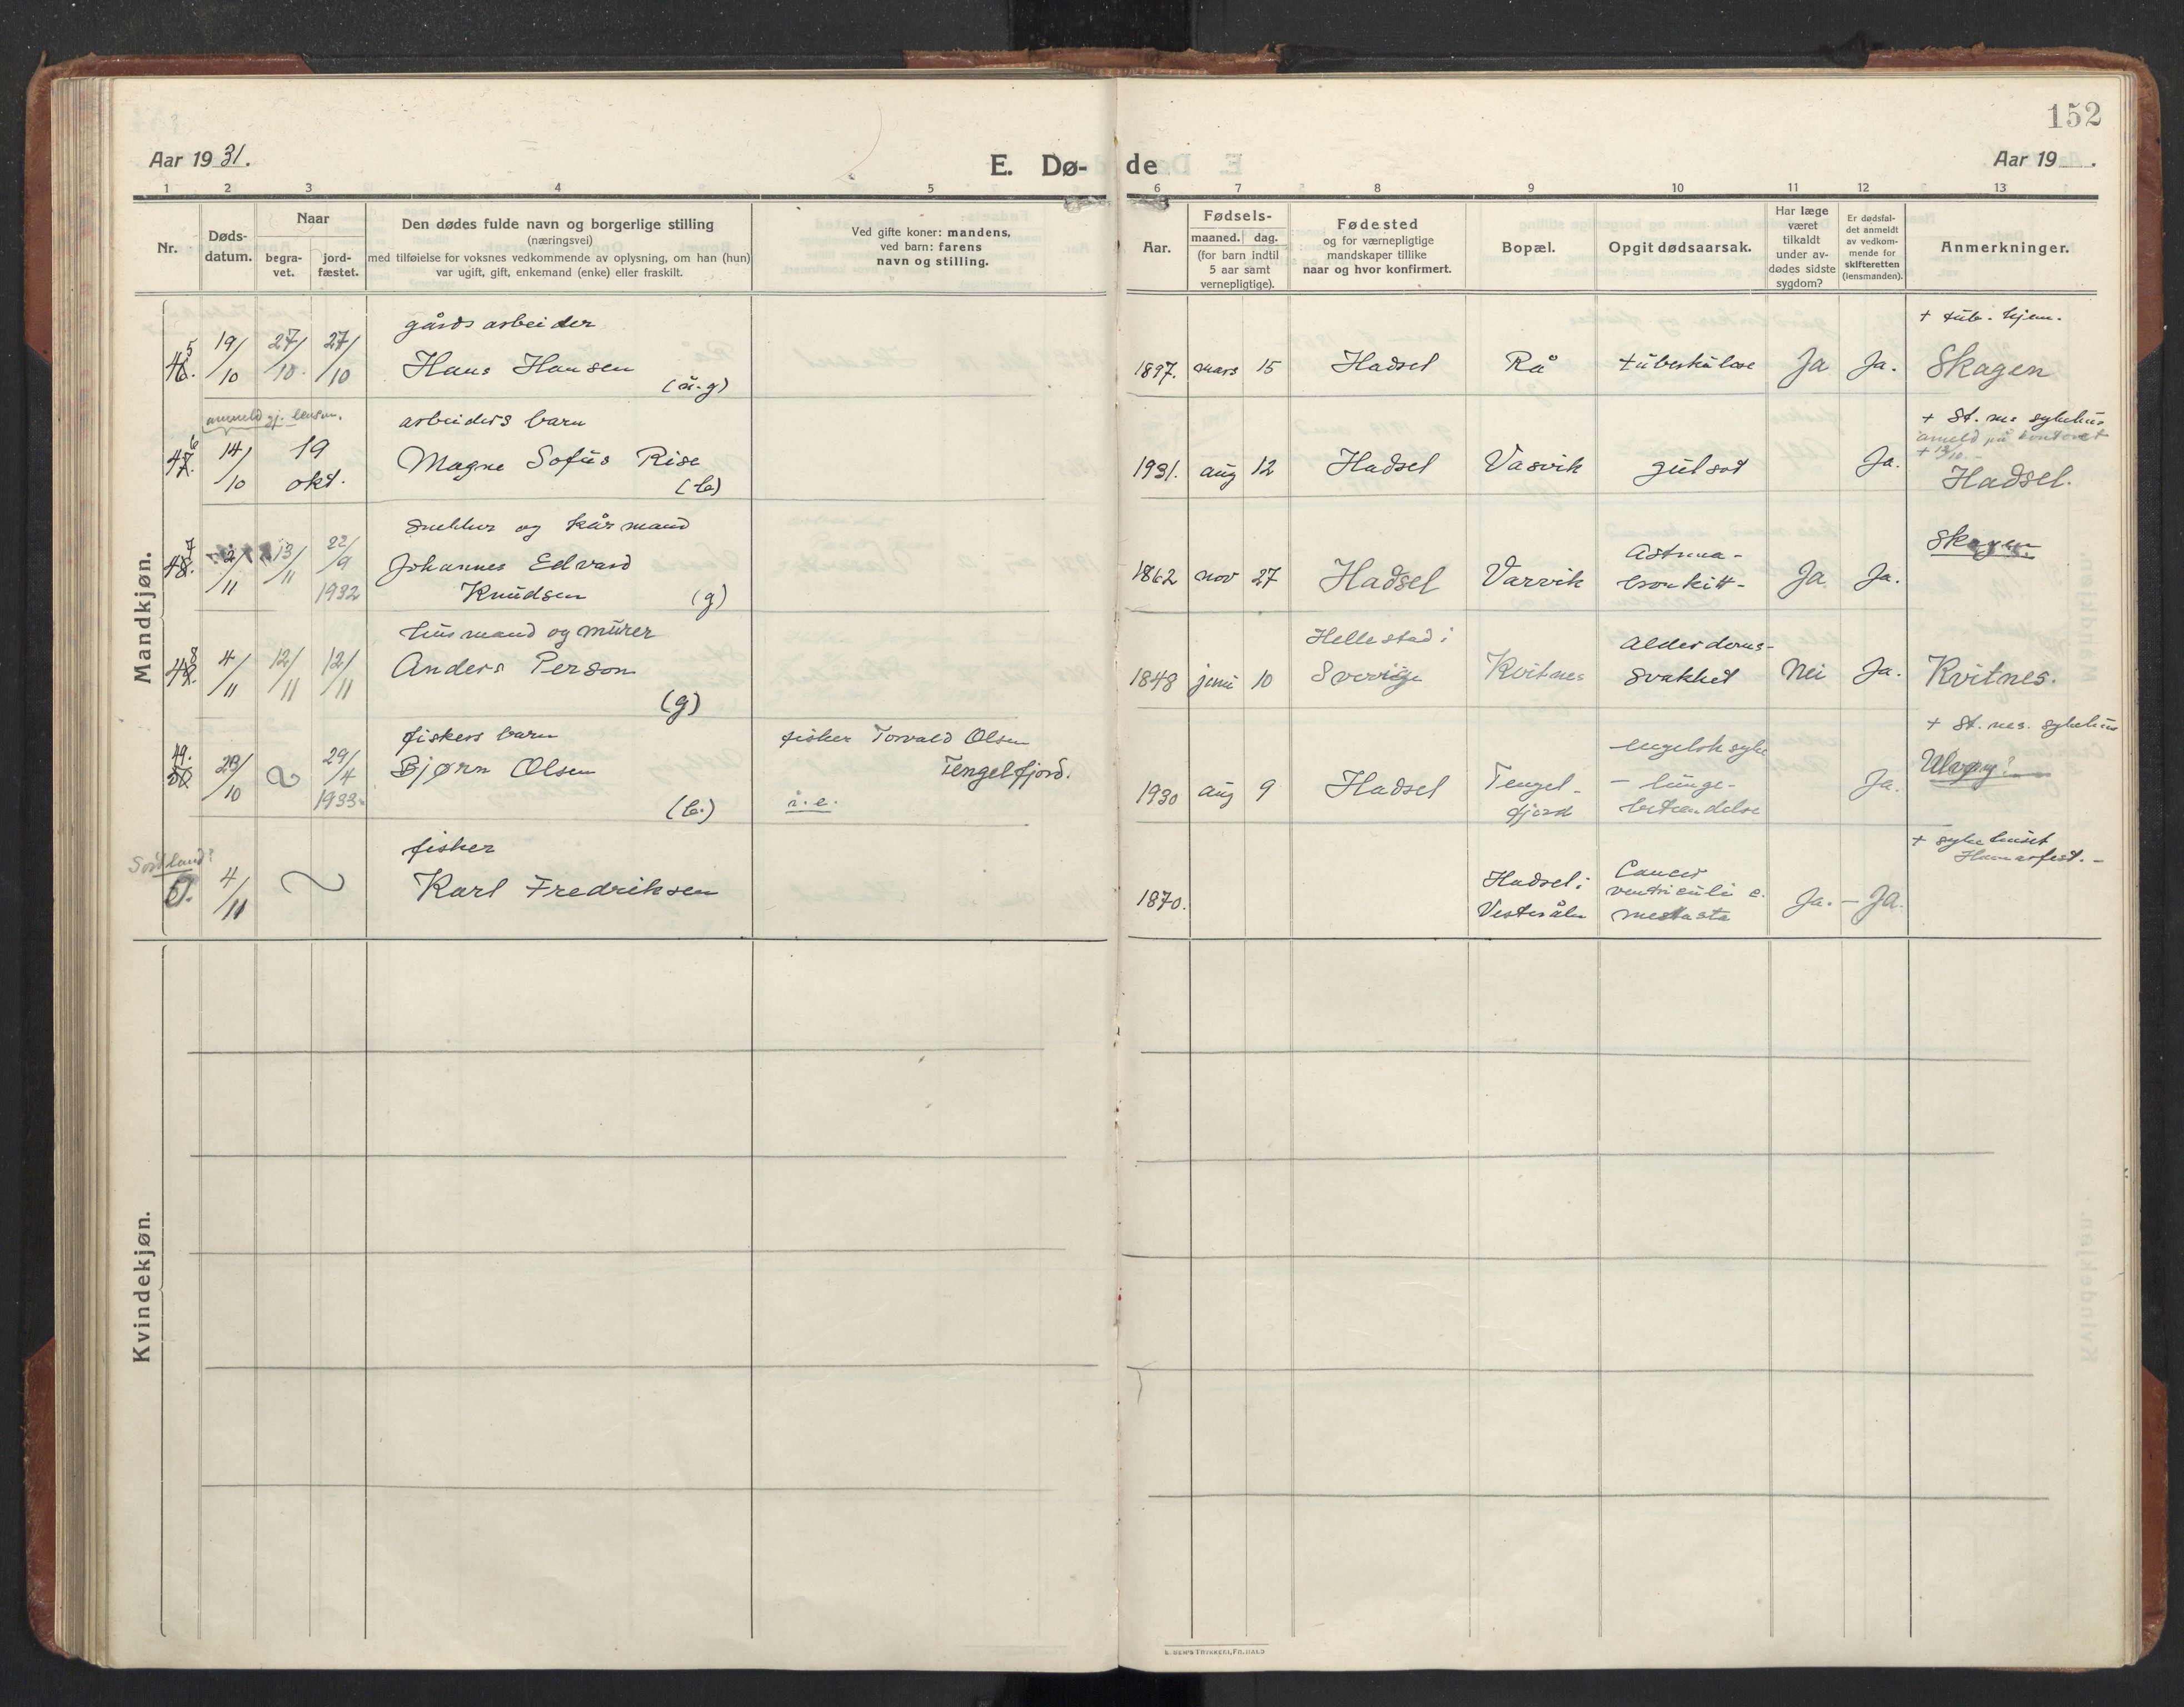 152
Aar 1931.
E. Dø-de
Aar 19
1 2 3 4 5 6 7 8 9 10 11 12 13
Nr.
Døds-
datum.
Naar
begra-
vet.
jord-
fæstet.
Den dødes fulde navn og borgerlige stilling
(næringsvei)
med tilføielse for voksnes vedkommende av oplysning, om han (hun)
var ugift, gift, enkemand (enke) eller fraskilt.
Ved gifte koner: mandens,
ved barn: farens
navn og stilling.
Aar.
Fødsels-
maaned. dag.
(for barn indtil
5 aar samt
vernepligtige).
Fødested
og for værnepligtige
mandskaper tillike
naar og hvor konfirmert.
Bopæl.
Opgit dødsaarsak.
Har læge
været
tilkaldt
under av-
dødes sidste
sygdom?
Er dødsfal-
det anmeldt
av vedkom-
mende for
skifteretten
(lensmanden).
Anmerkninger.
Mandkjøn.
5
46.
19/10
27/10
27/10
gårds arbeider
Hans Hansen
(u.g)
1897. mars 15
Hadsel
Rå
tuberkulose
Ja
Ja.
+ tub. hjem.
Skagen
anmeld gj. lensm.
6
47.
14/10
19
okt.
arbeiders barn
Magne Sofus Rise
(b)
1931. aug 12
Hadsel
Vasvik
gulsot
Ja.
+ St. nes sykehus
anmeld på kontoret
+ 13/10 -
Hadsel.
7
48.
2/11
13/11
22/9
1932
snekker og kårmand
Johannes Edvard
Knudsen
(g)
1862 nov 27
Hadsel
Varvik
Astma-
bronkitt-
Ja
Ja.
Skagen
8
49.
4/11
12/11
12/11
husmand og murer
Anders Person
(g)
1848 juni 10
Hellestad i
Sverige
Kvitnes
Alderdoms-
svakhet
Nei
Ja.
Kvitnes.
49.
50
29/4
1933
fiskers barn
Bjørn Olsen
(b.)
fisker Torvald Olsen
Tengelfjord.
u.e.
1930 aug 9
Hadsel
Tengel-
fjord
engelsk syke
- lunge-
betændelse
Ja.
+ St. nes. sykehus
Sortland?
51.
4/11
fisker
Karl Fredriksen
1870.
Hadsel i
Vesterålen
Cancer
ventriculi c.
metasta
Ja. - Ja.
+ sykehuset
Hammerfest. -
Kvindekjøn.